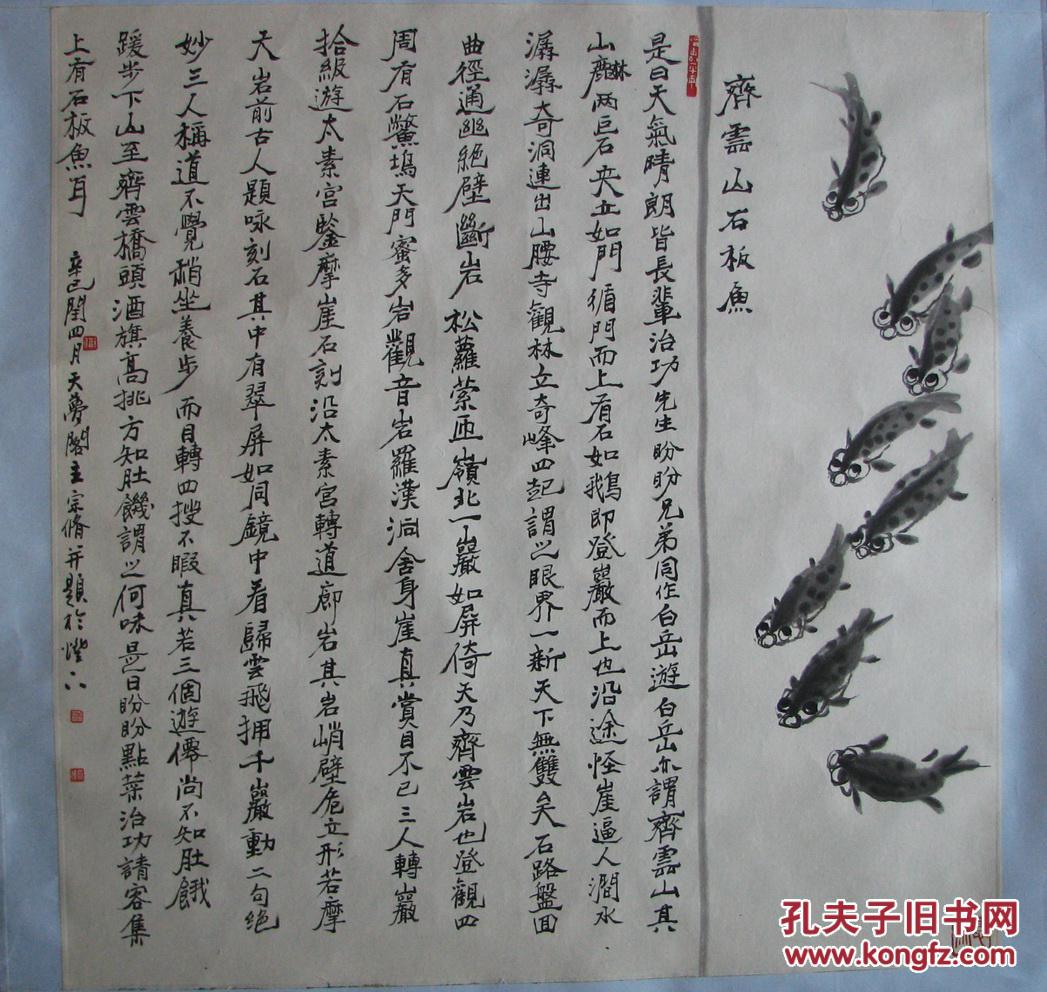 齊雲山石板魚
是日天氣晴朗皆長輩治功先生盼盼兄弟同作白岳遊白岳亦謂齊雲山其
山麓林两巨石夾立如門循門而上有石如鵝即登巖而上也沿途怪崖逼人澗水
潺潺奇洞連出山腰寺觀林立奇峰四起謂之眼界一新天下無雙矣石路盤回
曲徑通幽絕壁斷岩松蘿縈匝嶺北一巖如屏倚天乃齊雲岩也登觀四
周有石鱉塢天門蜜多岩觀音岩羅漢洞舍身崖真賞目不已三人轉巖
拾級遊太素宮鑒摩崖石刻沿太素宮轉道廊岩其岩峭壁危立形若摩
天岩前古人題咏刻石其中有翠屏如同鏡中看歸雲飛拥千巖動二句絕
妙三人稱道不覺稍坐養步而目轉四搜不暇真若三個遊僊尚不知肚餓
踱步下山至齊雲橋頭酒旗高挑方知肚饑謂之何味是日盼盼點菜治功請客集
上有石板魚耳 辛巳閏四月天夢閣主宗脩并題於燈下
孔夫子旧书网
www.kongfz.com